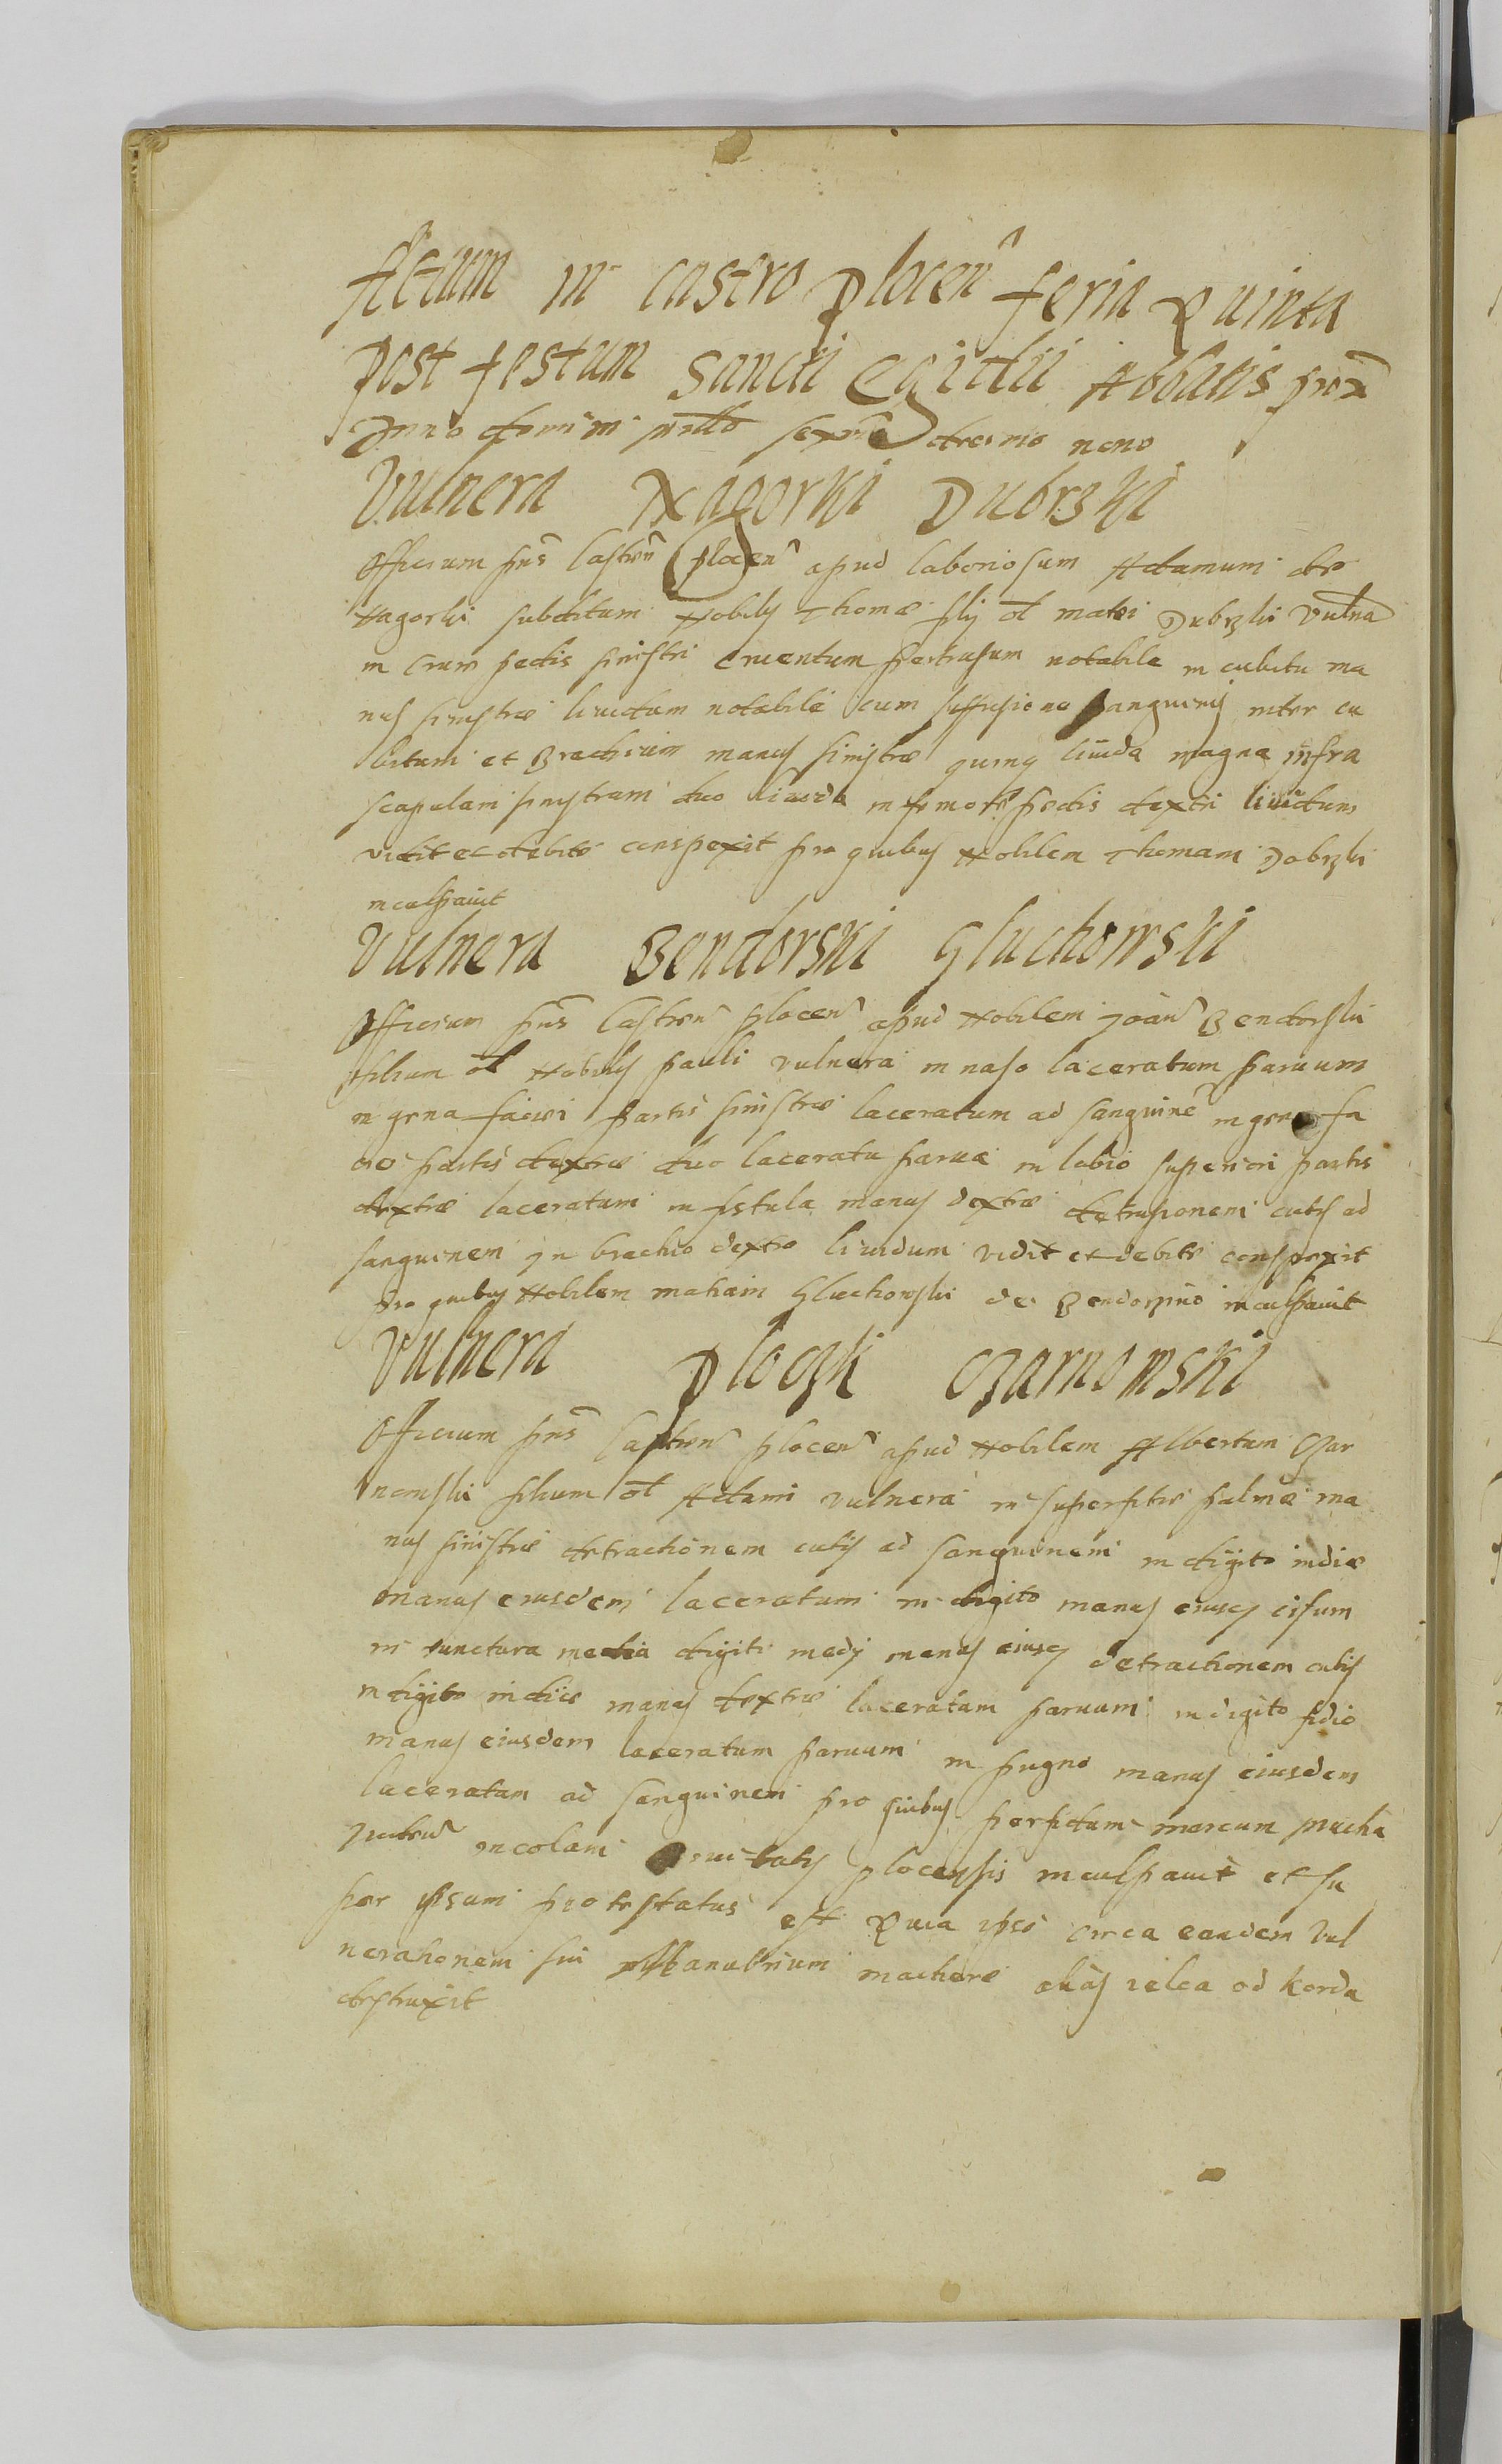 Actum in Castro Plocen̄ feria Quinta
post festum Sancti Egidii Abbatis prox̄
Anno domini millō sexmo decimo nono
Vulnera Nagorki Dubrzki
Officium pn̄s Castren̄ plocen̄ apud laboriosum Adamum de
Nagorki subditum Nobilis Thomæ filij ol̄ matei Dubrzki vulnā
in crure pedis sinistri cruentum pertusum notabile in cubitu ma
nus sinistræ liuidum notabile cum suffusione sanguinis inter cu
bitum et Brachium manus sinistræ quinq liuida magna infra
scapulam sinystram duo liuida in femore pedis dextri liuidum
vidit et debite conspexit pro quibus Nobilem Thomam Dobrzki
inculpauit
Vulnera Bendorski Gluchowski
Officium pn̄s Castren̄ plocen̄ apud Nobilem Joan̄ Bendorski
filium ol̄ Nobilis pauli vulnera in naso laceratum paruum
in gena faciei partis sinistræ laceratum ad sanguinē in gena fa
ciei partis dextræ duo lacerata parua in labio superiori partis
dextræ laceratum in fistula manus dextræ detrusionem cutis ad
sanguinem in brachio dextro liuidum vidit et debite conspexit
pro quibus Nobilem matiam Gluchowski de Bendorzino inculpauit
Vulnera Ploczki Czarnowski
Officium pn̄s Castren̄ plocen̄ apud Nobilem Albertum Czar
nowski filium ol̄ Adami vulnera in superficie palmæ ma
nus sinistræ detractionem cutis ad sanguinem in digito indice
manus eiusdem laceratum in digito manus eiusq cisum
in iunctura media digiti medij manus eiusq detractionem cutis
in digito indice manus dextræ laceratum paruum in digito
manus eiusdem laceratum paruum in pugno manus eiusdem
laceratum ad sanguinem pro quibus perfidum marcum
incolam Ciuitatis plocensis inculpauit et su
per ipsum protestatus est Quia ipse circa eandem vul
nerationem sui manubrium macheræ alias ielca od korda
destruxit